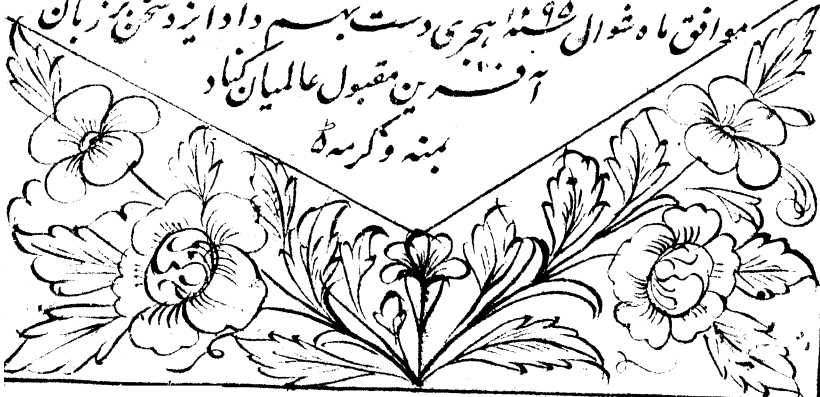 موافق ماه شوال سنه ۱۲۹۵ هجری دست بهم داد ایزد سخن بر زبان
آفرین مقبول عالمیان کناد
بمنه و کرمه